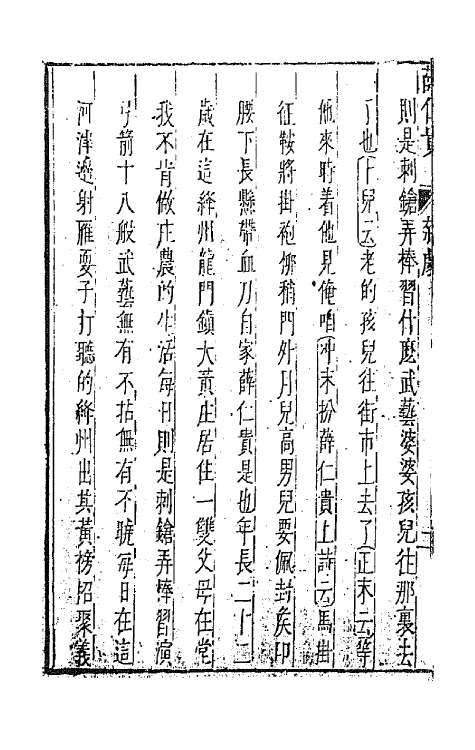 則是刺鎗弄棒習什麽武藝婆婆孩兒往那裏去
了也卜兒云老的孩兒往街市上去了正末云等
他來時着他見俺咱冲末扮薛仁貴上詩云馬掛
征鞍將掛袍柳稍門外月兒高男兒要佩封矦印
腰下長懸帶血刀自家薛仁貴是也年長二十二
歲在這絳州龍門鎮大黄庄居住一雙父母在堂
我不肯做庄農的生活每日則是刺鎗弄棒習演
弓箭十八般武藝無有不拈無有不曉每日在這
河津邊射雁耍子打聽的絳州出其黃榜招聚義